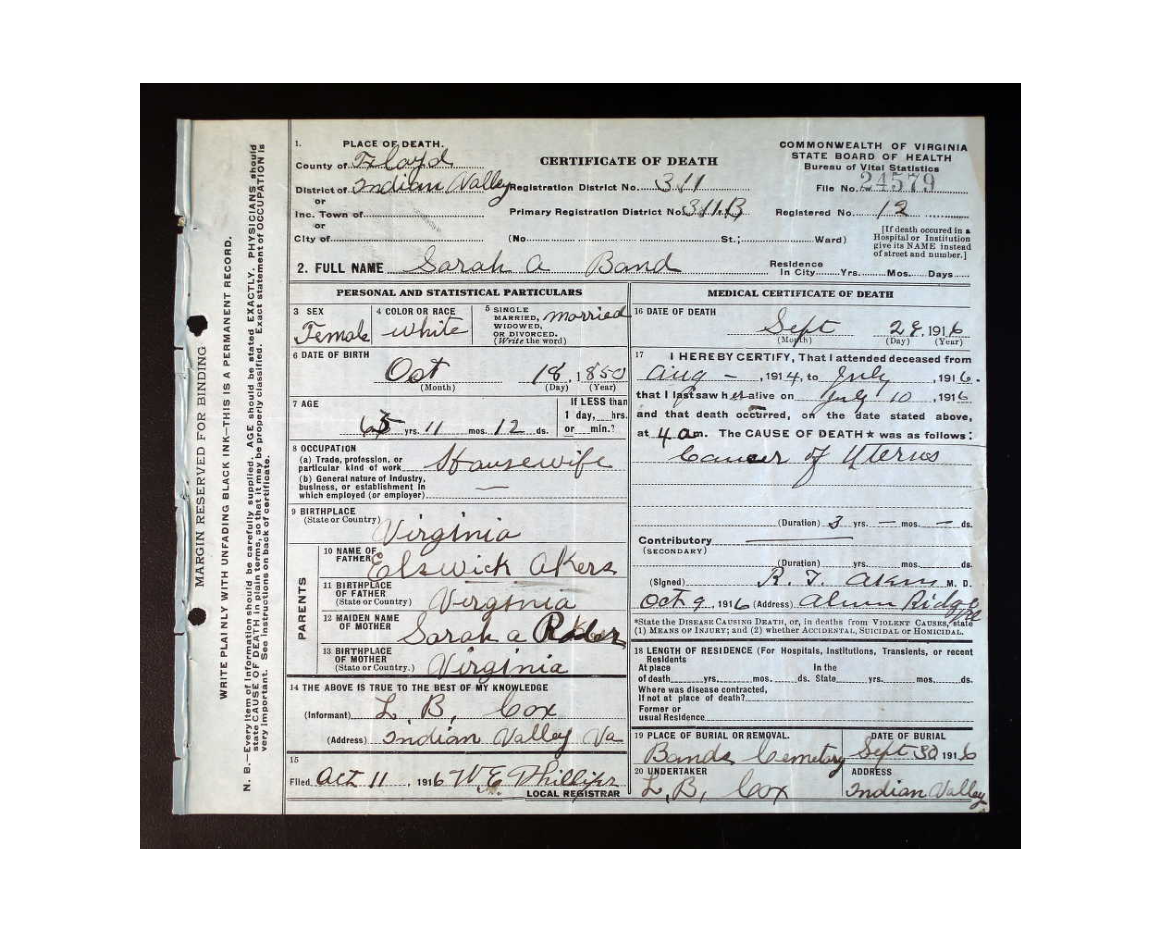 MARGIN RESERVED FOR BINDING
WRITE PLAINLY WITH UNFADING BLACK INK—THIS IS A PERMANENT RECORD.
N. B.—Every item of information should be carefully supplied. AGE should be stated EXACTLY. PHYSICIANS should
state CAUSE OF DEATH in plain terms, so that it may be properly classified. Exact statement of OCCUPATION is
very important. See instructions on back of certificate.
1. PLACE OF DEATH.
County of Floyd
District of Indian Valley
or
Inc. Town of
or
City of
CERTIFICATE OF DEATH
Registration District No. 311
Primary Registration District No. 311B
(No. St.; Ward)
COMMONWEALTH OF VIRGINIA
STATE BOARD OF HEALTH
Bureau of Vital Statistics
File No. 24579
Registered No. 12
[If death occured in a
Hospital or Institution
give its NAME instead
of street and number.]
2. FULL NAME Sarah A Band
Residence
In City Yrs. Mos. Days
PERSONAL AND STATISTICAL PARTICULARS
3 SEX
Female
4 COLOR OR RACE
White
5 SINGLE
MARRIED,
WIDOWED,
OR DIVORCED.
(Write the word)
Married
6 DATE OF BIRTH
Oct 18, 1850
(Month) (Day) (Year)
7 AGE
65 yrs. 11 mos. 12 ds.
If LESS than
1 day, hrs.
or min.?
8 OCCUPATION
(a) Trade, profession, or
particular kind of work Housewife
(b) General nature of industry,
business, or establishment in
which employed (or employer)
9 BIRTHPLACE
(State or Country) Virginia
PARENTS
10 NAME OF
FATHER Elswick Akers
11 BIRTHPLACE
OF FATHER
(State or Country) Virginia
12 MAIDEN NAME
OF MOTHER Sarah A
13 BIRTHPLACE
OF MOTHER
(State or Country.) Virginia
14 THE ABOVE IS TRUE TO THE BEST OF MY KNOWLEDGE
(Informant) L. B. Cox
(Address) Indian Valley Va
15
Filed Oct 11, 1916 W E Phillips
LOCAL REGISTRAR
MEDICAL CERTIFICATE OF DEATH
16 DATE OF DEATH
Sept 29, 1916
(Month) (Day) (Year)
17 I HEREBY CERTIFY, That I attended deceased from
Aug —, 1914, to July, 1916.
that I last saw her alive on July 10, 1916
and that death occurred, on the date stated above,
at 4 am. The CAUSE OF DEATH★ was as follows:
Cancer of Uterus
(Duration) 3 yrs. — mos. — ds.
Contributory
(SECONDARY)
(Duration) yrs. mos. ds.
(Signed) R. T. Akers M. D.
Oct 9, 1916 (Address) Alum Ridge
*State the DISEASE CAUSING DEATH, or, in deaths from VIOLENT CAUSES, state
(1) MEANS OF INJURY; and (2) whether ACCIDENTAL, SUICIDAL or HOMICIDAL.
18 LENGTH OF RESIDENCE (For Hospitals, Institutions, Transients, or recent
Residents
At place In the
of death yrs. mos. ds. State yrs. mos. ds.
Where was disease contracted,
if not at place of death?
Former or
usual Residence
19 PLACE OF BURIAL OR REMOVAL.
Bands Cemetary
DATE OF BURIAL
Sept 30 1916
20 UNDERTAKER
L. B. Cox
ADDRESS
Indian Valley